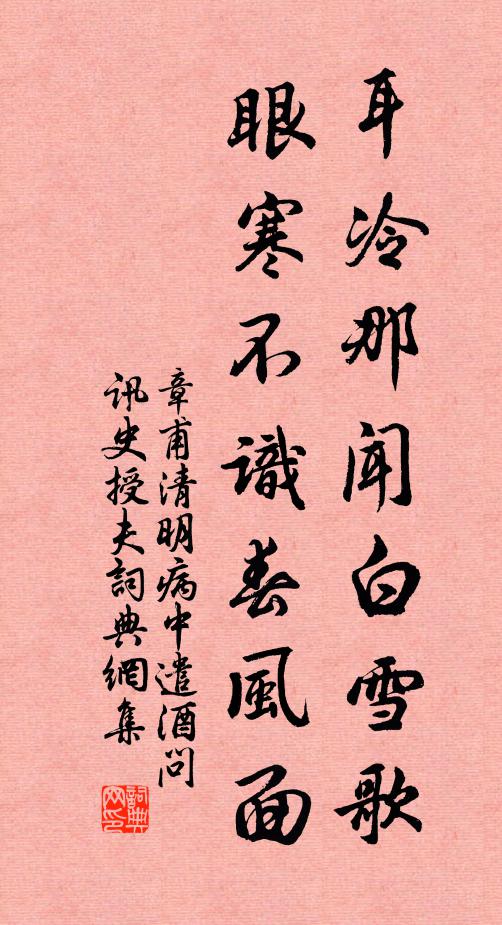 耳冷那闻白雪歌
眼寒不識春風面
章甫清明病中遣酒问
讯史授夫詞典網集
詞典网印